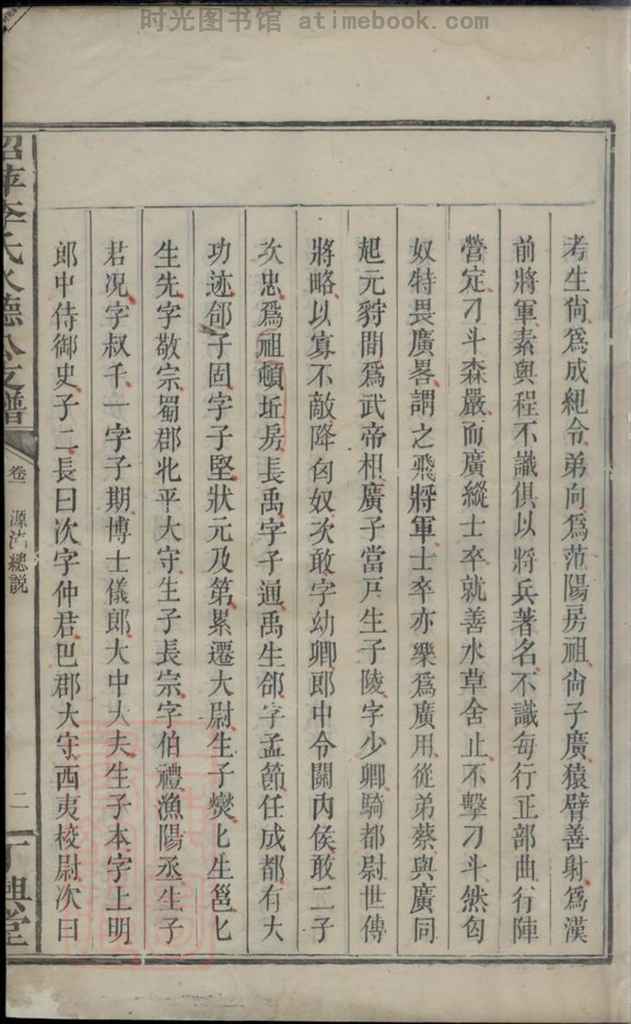 时光图书馆 atimebook.com
考生尙爲成䋲令弟向爲范陽房祖尙子廣猿臂善射爲漢
前將軍素與程不識俱以將兵著名不識每行正部曲行陣
營定刁斗森嚴而廣縱士卒就善水草舍止不擊刁斗然匈
奴特畏廣畧謂之飛將軍士卒亦樂爲廣用從弟蔡與廣同
起元狩間爲武帝相廣子當戸生子陵字少卿騎都尉世傳
將略以寡不敵降匈奴次敢字幼卿郎中令關內侯敢二子
次忠爲祖頓坵房長禹字子通禹生郃字孟節任成都有大
功迹郃子固字子堅狀元及第累遷大尉生子爕匕生邕匕
生先字敬宗蜀郡北平大守生子長宗字伯禮漁陽丞生子
君况字叔千一字子期博士儀郎大中大夫生子本字上明
郎中侍御史子二長曰次字仲君巴郡大守西夷校尉次曰
李氏永德公支譜
卷一
總說
二
興堂